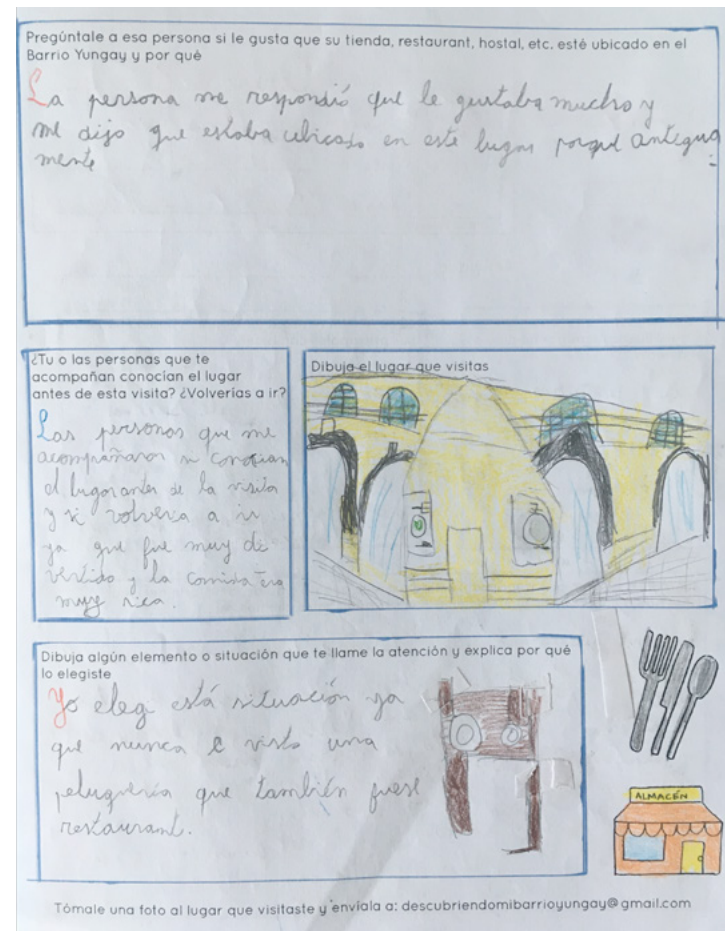 Pregúntale a esa persona si le gusta que su tienda, restaurant, hostal, etc. esté ubicado en el
Barrio Yungay y por qué
La persona me respondió que le gustaba mucho y
me dijo que estaba ubicado en este lugar porque antigua
mente
¿Tu o las personas que te
acompañan conocían el lugar
antes de esta visita? ¿Volverías a ir?
Las personas que me
acompañaron si conocian
el lugar antes de la visita
y si volveria a ir
ya que fue muy di
vertido y la comida era
muy rica.
Dibuja el lugar que visitas
Dibuja algún elemento o situación que te llame la atención y explica por qué
lo elegiste
Yo elegi está situación ya
que nunca e visto una
peluqueria que también fuese
restaurant.
ALMACÉN
Tómale una foto al lugar que visitaste y envíala a: descubriendomibarrioyungay@gmail.com